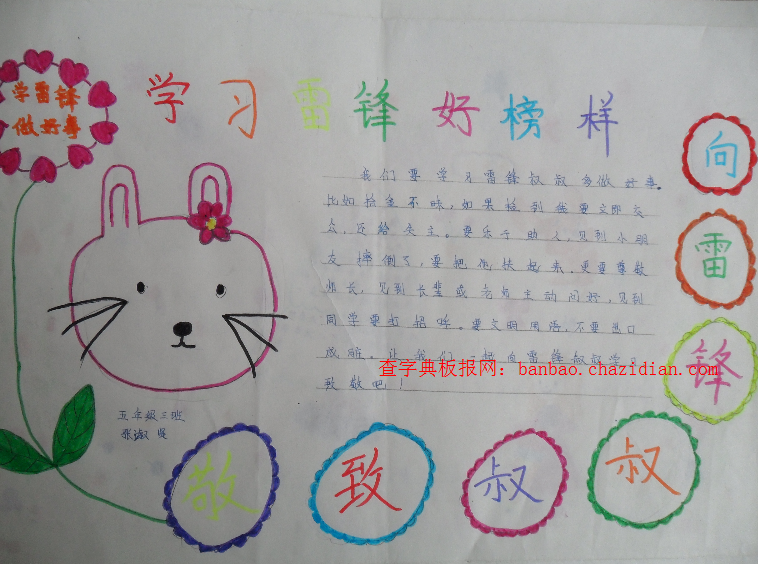 学雷锋
做好事
学习雷锋好榜样
我们要学习雷锋叔叔多做好事。
比如拾金不昧,如果捡到钱要立即交
公,还给失主。要乐于助人,见到小朋
友摔倒了,要把他扶起来。更要尊敬
师长,见到长辈或老师主动问好,见到
同学要打招呼。要文明用语,不要出口
成脏。让我们一起向雷锋叔叔学习
致敬吧!
查字典板报网:banbao.chazidian.com
五年级三班
张淑
向
雷
锋
叔
叔
致
敬